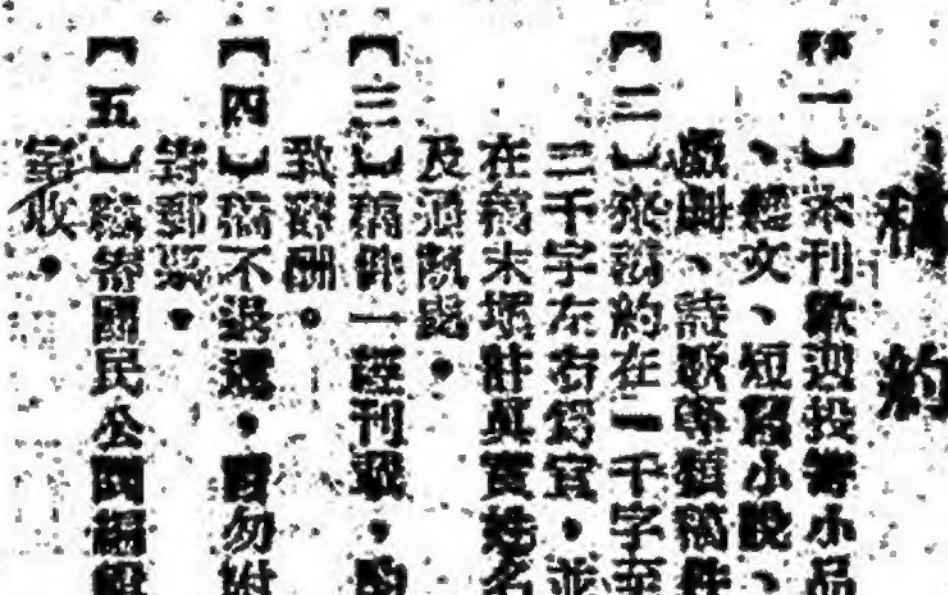 稿約
【一】本刊歡迎投寄小品
、雜文、短篇小說、
戲劇、詩歌等類稿件
【二】來稿約在一千字至
三千字左右爲宜,並
在稿末塡註眞實姓名
及通訊處。
【三】稿件一經刊載,
致薄酬。
【四】稿不退還,請勿附
封郵票。
【五】稿寄國民公園編
室收。